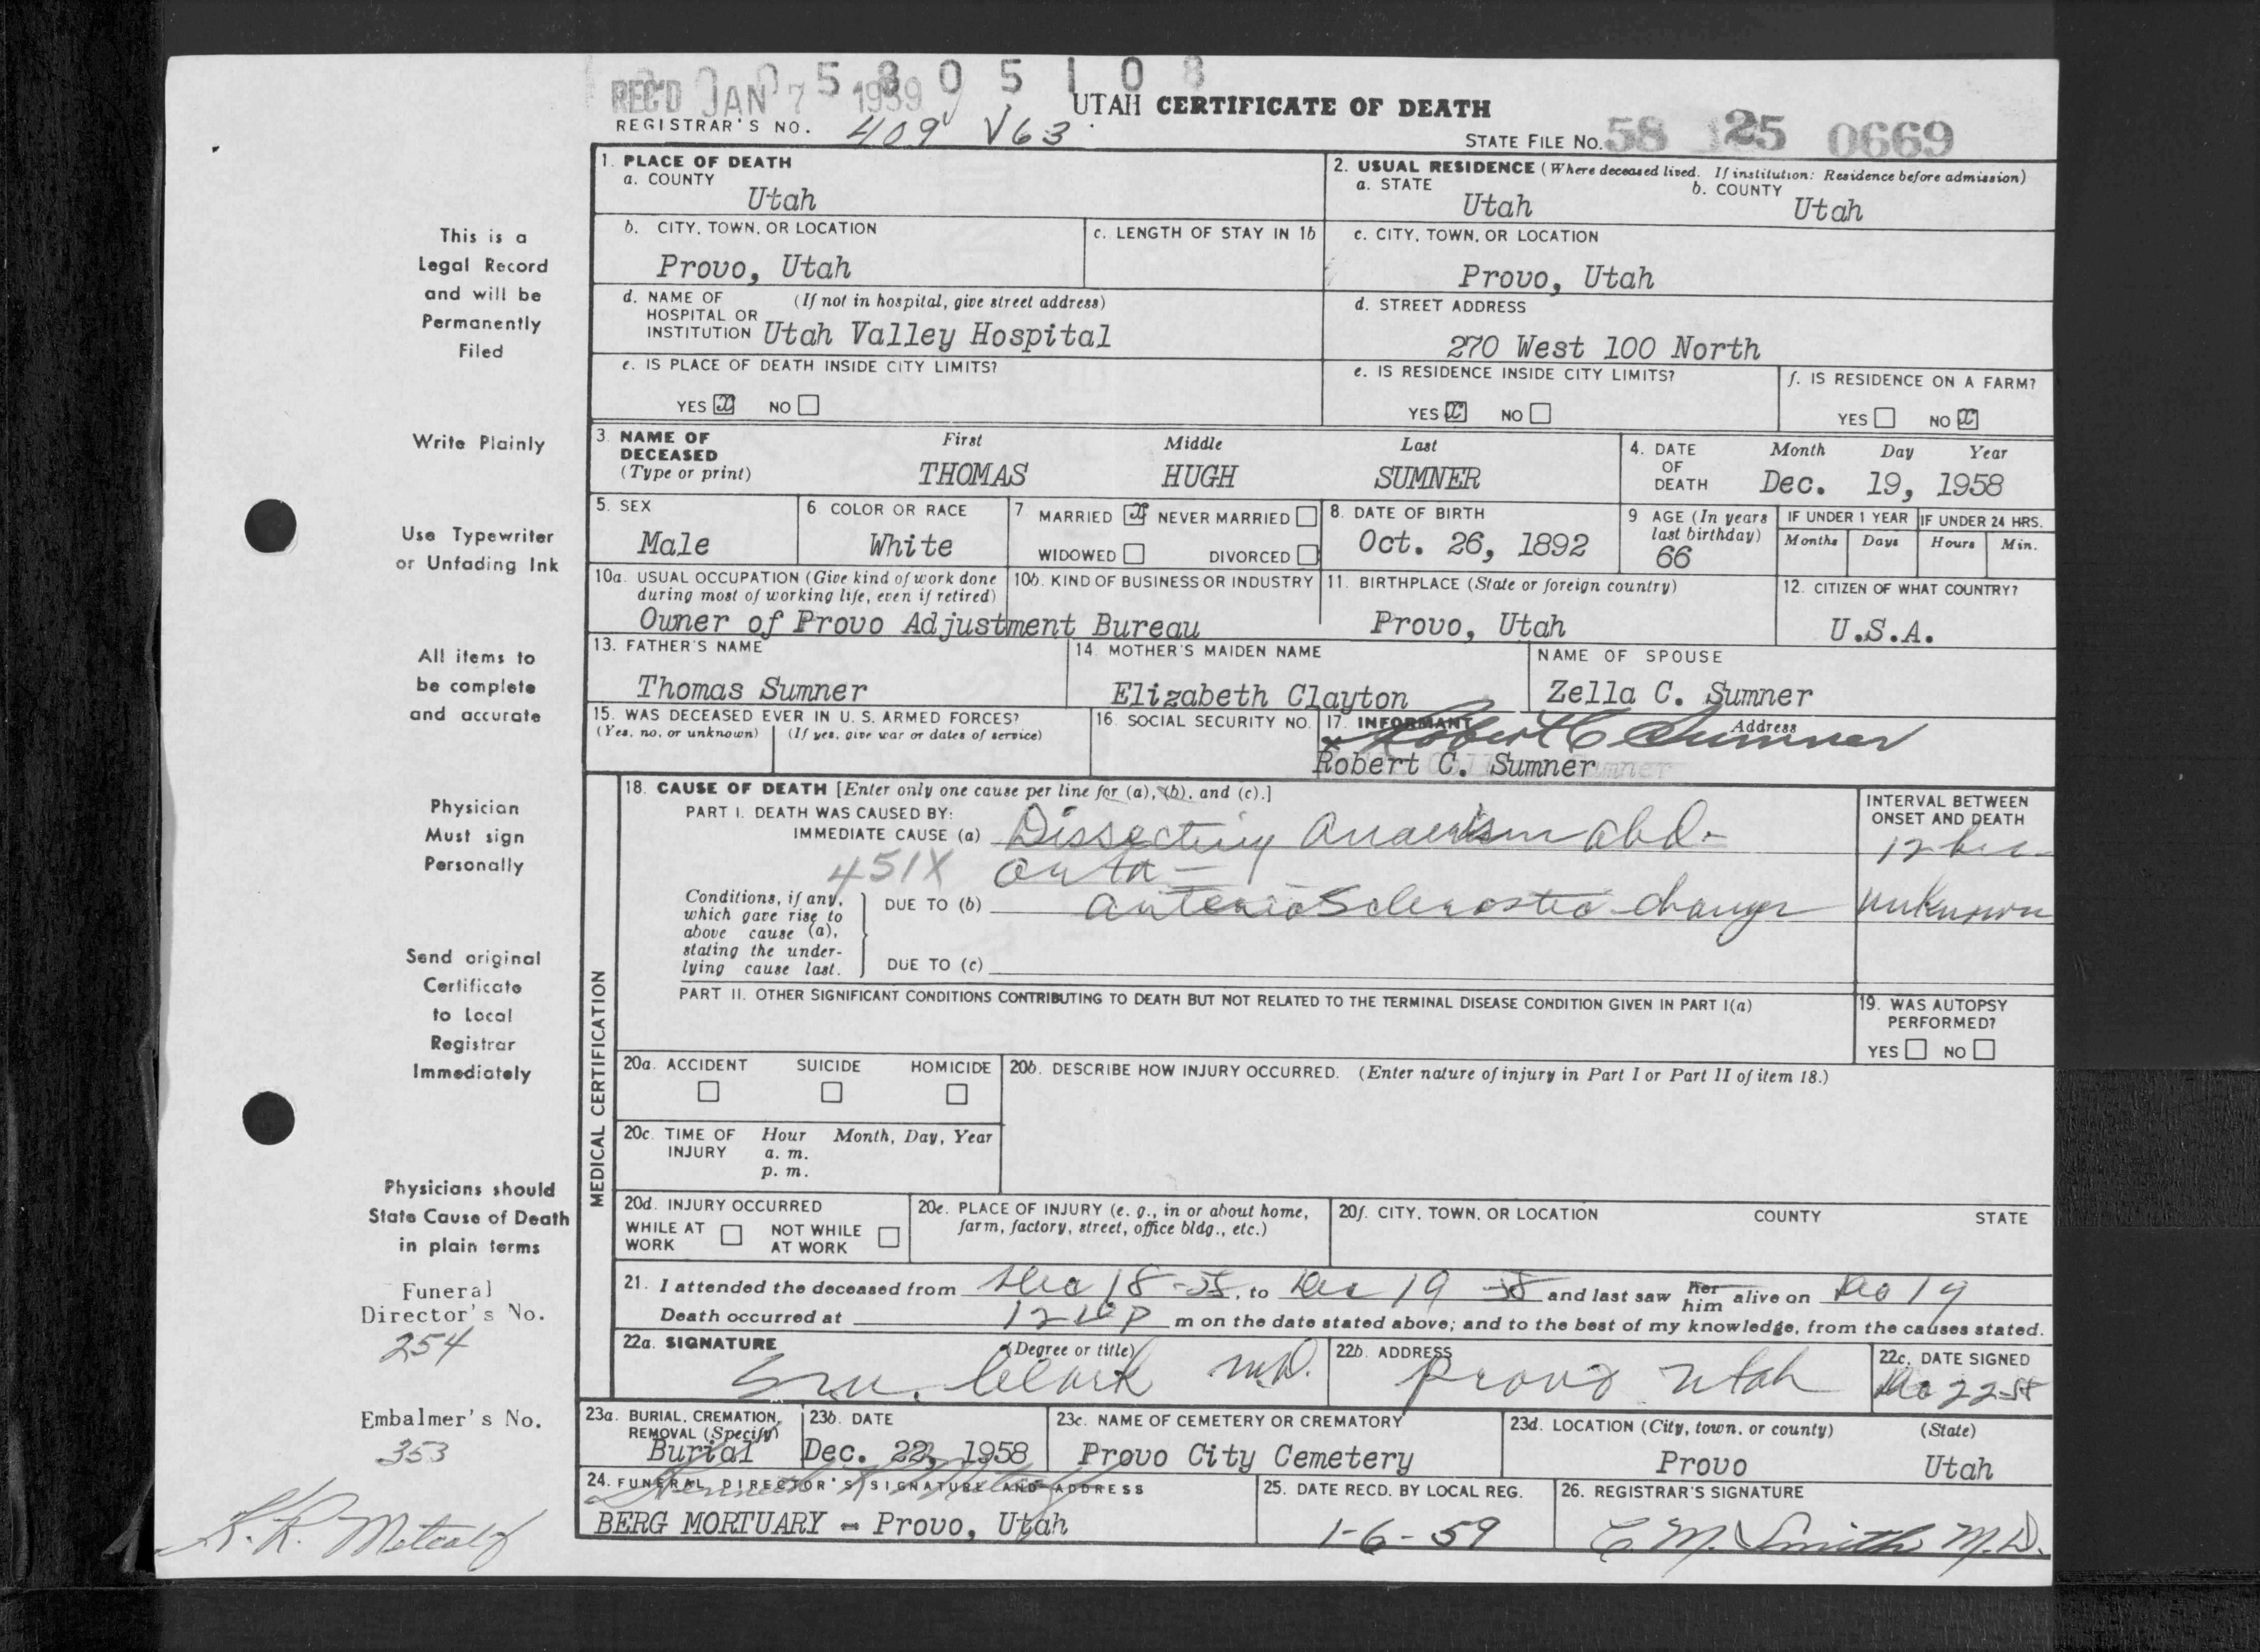 0 0 0 5 8 0 5 1 0 8
REC'D JAN 7 1959
UTAH CERTIFICATE OF DEATH
REGISTRAR'S NO. 409 V63
STATE FILE NO. 58 125 0669
1. PLACE OF DEATH
a. COUNTY
Utah
2. USUAL RESIDENCE (Where deceased lived. If institution: Residence before admission)
a. STATE
Utah
b. COUNTY
Utah
b. CITY, TOWN, OR LOCATION
Provo, Utah
c. LENGTH OF STAY IN 1b
c. CITY, TOWN, OR LOCATION
Provo, Utah
d. NAME OF (If not in hospital, give street address)
HOSPITAL OR
INSTITUTION Utah Valley Hospital
d. STREET ADDRESS
270 West 100 North
e. IS PLACE OF DEATH INSIDE CITY LIMITS?
YES x NO
e. IS RESIDENCE INSIDE CITY LIMITS?
YES x NO
f. IS RESIDENCE ON A FARM?
YES NO x
3. NAME OF DECEASED (Type or print)
First Middle Last
THOMAS HUGH SUMNER
4. DATE OF DEATH
Month Day Year
Dec. 19, 1958
5. SEX
Male
6. COLOR OR RACE
White
7 MARRIED x NEVER MARRIED
WIDOWED DIVORCED
8. DATE OF BIRTH
Oct. 26, 1892
9 AGE (In years last birthday)
66
IF UNDER 1 YEAR
Months Days
IF UNDER 24 HRS.
Hours Min.
10a. USUAL OCCUPATION (Give kind of work done
during most of working life, even if retired)
10b. KIND OF BUSINESS OR INDUSTRY
Owner of Provo Adjustment Bureau
11. BIRTHPLACE (State or foreign country)
Provo, Utah
12. CITIZEN OF WHAT COUNTRY?
U.S.A.
13. FATHER'S NAME
Thomas Sumner
14. MOTHER'S MAIDEN NAME
Elizabeth Clayton
NAME OF SPOUSE
Zella C. Sumner
15. WAS DECEASED EVER IN U. S. ARMED FORCES?
(Yes, no, or unknown) (If yes, give war or dates of service)
16. SOCIAL SECURITY NO.
17. INFORMANT Address
x Robert C Sumner
Robert C. Sumner
MEDICAL CERTIFICATION
18. CAUSE OF DEATH [Enter only one cause per line for (a), (b), and (c).]
PART I. DEATH WAS CAUSED BY:
IMMEDIATE CAUSE (a) Dissecting Anaerism abd-
451X aorta -
INTERVAL BETWEEN ONSET AND DEATH
12 hrs
Conditions, if any,
which gave rise to
above cause (a),
stating the under-
lying cause last.
DUE TO (b) arterioSclerostic changes unknown
DUE TO (c)
PART II. OTHER SIGNIFICANT CONDITIONS CONTRIBUTING TO DEATH BUT NOT RELATED TO THE TERMINAL DISEASE CONDITION GIVEN IN PART I(a)
19. WAS AUTOPSY PERFORMED?
YES NO
20a. ACCIDENT SUICIDE HOMICIDE
20b. DESCRIBE HOW INJURY OCCURRED. (Enter nature of injury in Part I or Part II of item 18.)
20c. TIME OF INJURY
Hour Month, Day, Year
a. m.
p. m.
20d. INJURY OCCURRED
WHILE AT WORK NOT WHILE AT WORK
20e. PLACE OF INJURY (e. g., in or about home,
farm, factory, street, office bldg., etc.)
20f. CITY, TOWN, OR LOCATION COUNTY STATE
21. I attended the deceased from Dec 18-58, to Dec 19 58 and last saw her him alive on Dec 19
Death occurred at 12 10 P m on the date stated above; and to the best of my knowledge, from the causes stated.
22a. SIGNATURE (Degree or title)
Clark M.D.
22b. ADDRESS
Provo Utah
22c. DATE SIGNED
Dec 22-58
23a. BURIAL, CREMATION,
REMOVAL (Specify)
Burial
23b. DATE
Dec. 22, 1958
23c. NAME OF CEMETERY OR CREMATORY
Provo City Cemetery
23d. LOCATION (City, town, or county) (State)
Provo Utah
24. FUNERAL DIRECTOR'S SIGNATURE AND ADDRESS
BERG MORTUARY - Provo, Utah
25. DATE RECD. BY LOCAL REG.
1-6-59
26. REGISTRAR'S SIGNATURE
C. M. Smith M.D.
This is a
Legal Record
and will be
Permanently
Filed
Write Plainly
Use Typewriter
or Unfading Ink
All items to
be complete
and accurate
Physician
Must sign
Personally
Send original
Certificate
to Local
Registrar
Immediately
Physicians should
State Cause of Death
in plain terms
Funeral
Director's No.
254
Embalmer's No.
353
K. R. Metcalf